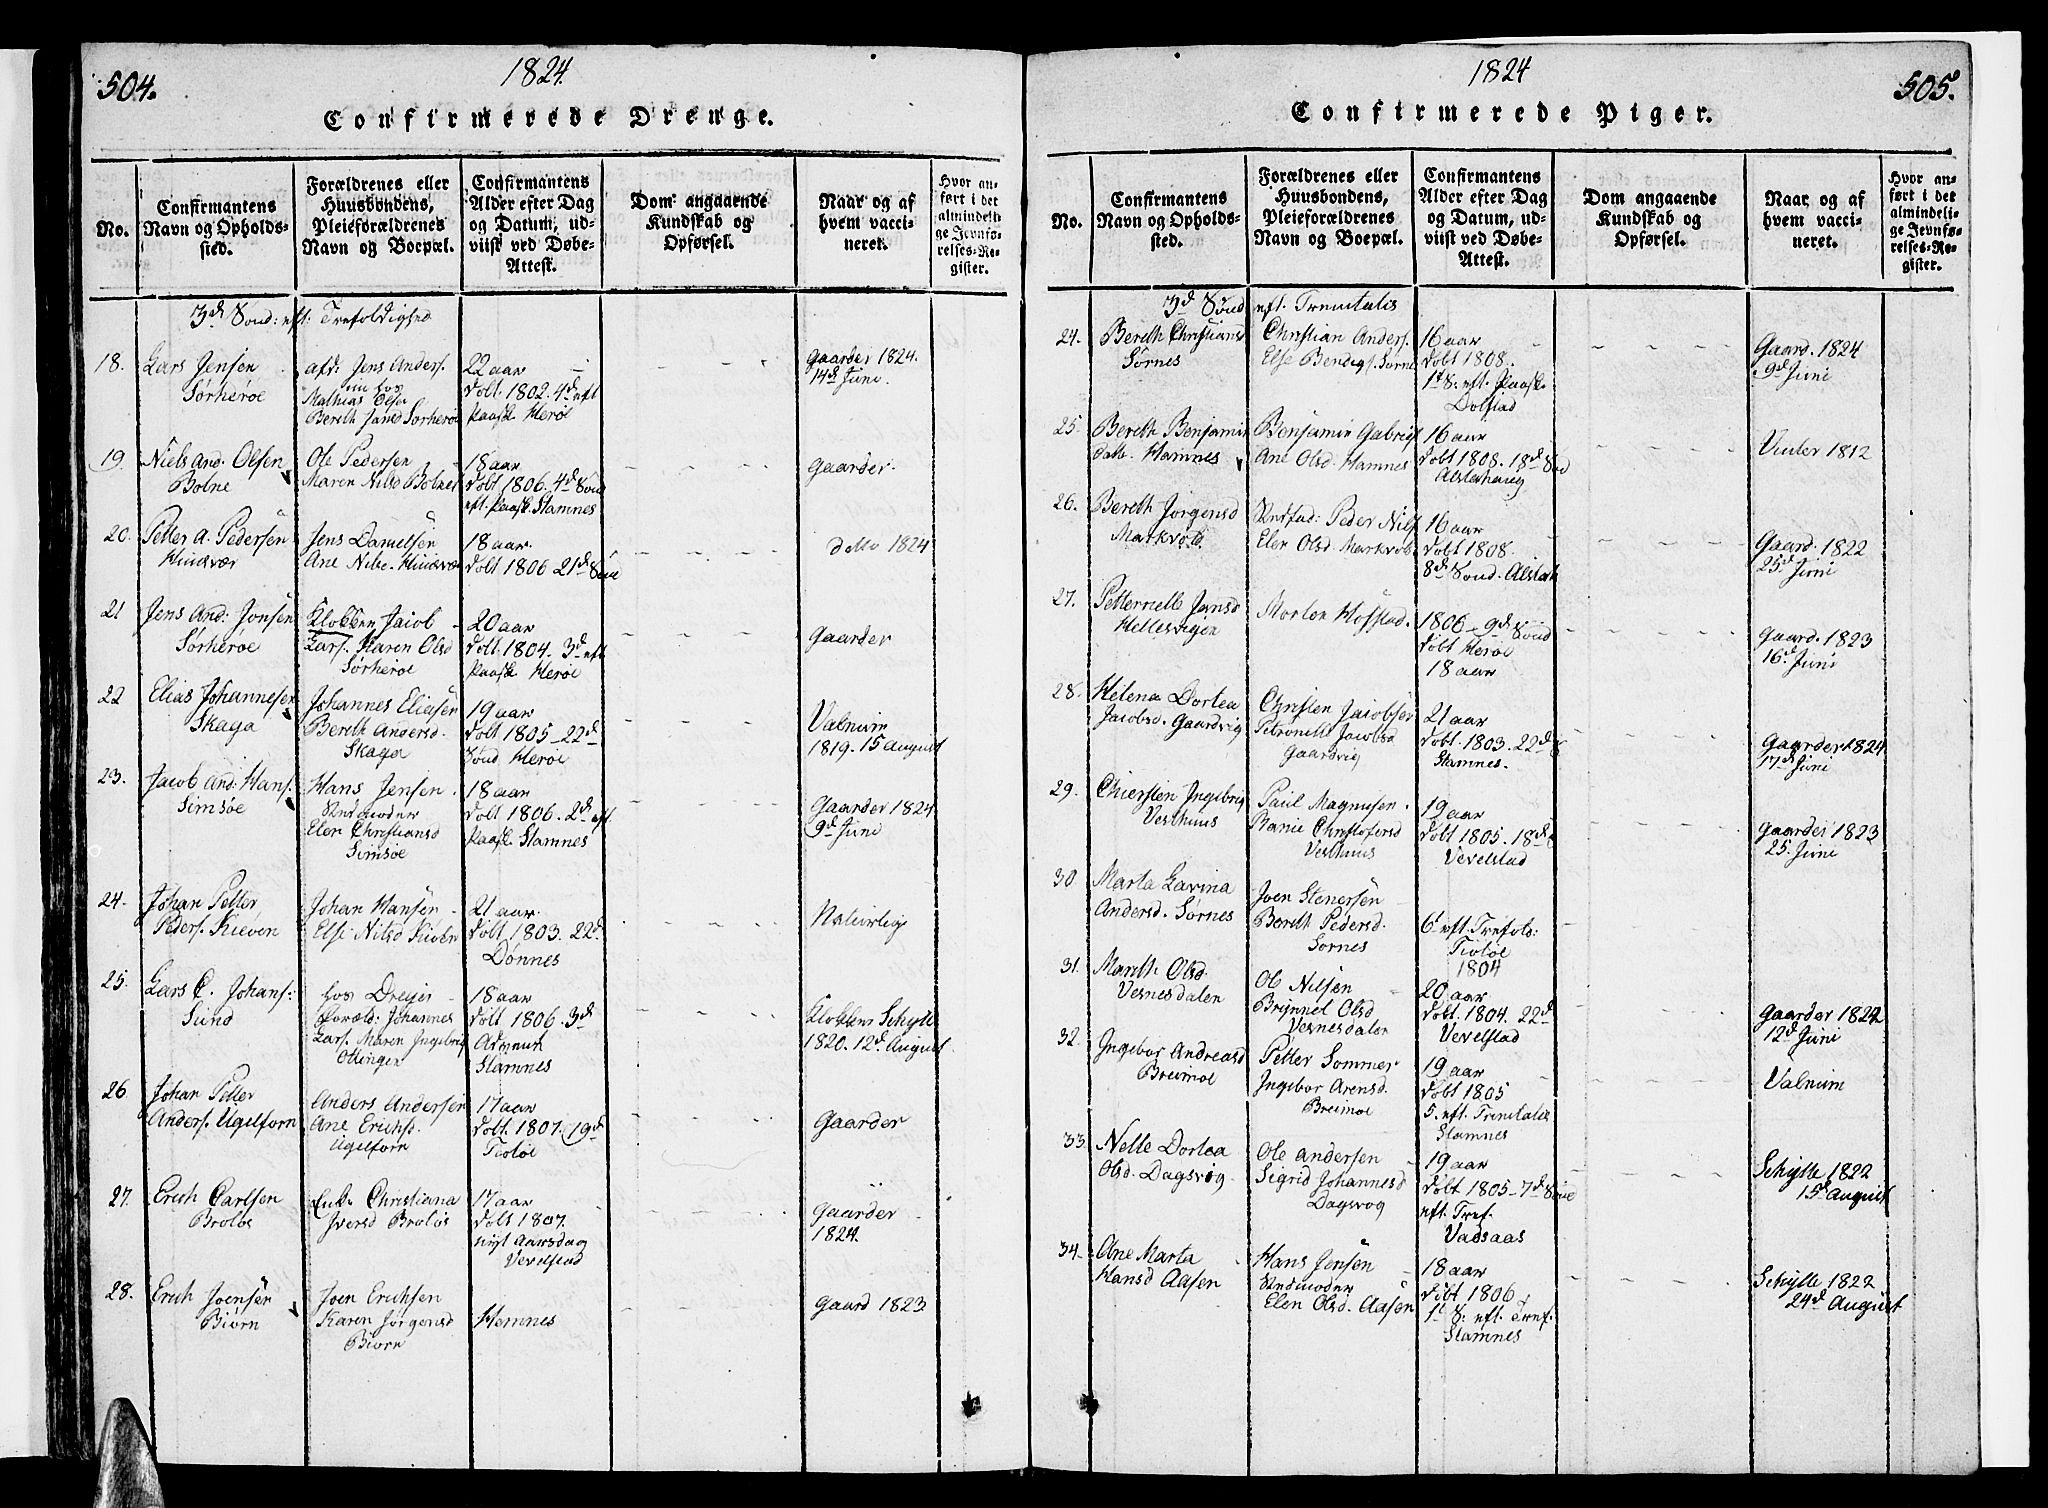 504.
1824.
Confirmerede Drenge.
No.
Confirmantens
Navn og Opholds-
sted.
Forældrenes eller
Huusbondens,
Pleieforældrenes
Navn og Boepæl.
Confirmantens
Alder efter Dag
og Datum, ud-
viist ved Døbe-
Attest.
Dom angaaende
Kundskab og
Opførsel.
Naar og af
hvem vacci-
neret.
Hvor an-
ført i det
almindeli-
ge Jevnfø-
relses-Re-
gister.
3d Sønd: eft: Trefoldighed
18.
Lars Jensen
Sørherøe
afd: Jens Anders.
nu hos
Mathias Ols.
Bereth Jansd Sørherøe
22 aar
døbt. 1802. 4d eft
Paask. Herøe
Gaarder 1824.
14d Juni
19.
Niels And: Olsen
Bolne
Ole Pedersen
Maren Nilsd Bolnes
18 aar
døbt 1806. 4d Sønd
eft. Paask. Stamnes
Gaarder.
20.
Petter A. Pedersen
Hindvær
Jens Danielsen
Ane Nilsd. Hindvær
18 aar.
døbt 1806 21d Sønd
detto 1824
21
Jens And: Jonsen
Sørherøe
Klokken Jacob
Lars. Karen Olsd
Sørherøe
20 aar
døbt. 1804. 3d eft
Paask Herøe
Gaarder
22
Elias Johannesen
Skaga
Johannes Eliasen
Bereth Andersd.
Skaga
19 aar
døbt 1805 - 22d
Sønd Herøe
Valnum
1819. 15 August
23.
Jacob And: Hans.
Simsøe
Hans Jensen.
Stedmoder
Elen Christiansd
Simsøe
18 aar
døbt 1806. 2d eft
Paask. Stamnes
Gaarder 1824
9d Juni
24.
Johan Petter
Peders. Kieven
Johan Hansen
Else Nilsd Kieven
21 aar.
døbt 1803. 22d.
Dønnes
Naturlig
25.
Lars C. Johans:
Sund
hos Dreyer
Foræld: Johannes
Lars. Maren Ingebrig
Ottinger
18 aar
døbt 1806. 3d
Advent
Stamnes
Klokken Schytte
1820. 12d August
26
Johan Petter
Anders. Ugelforn
Anders Andersen
Ane Erichs.
Ugelforn
17 aar
døbt. 1807. 19d
Tiøtøe
Gaarder
27.
Erich Carlsen
Broløs
Enke Christiana
Iversd Broløs
17 aar
døbt 1807.
Nyt Aarsdag
Vevelstad
Gaarder
1824.
28.
Erich Joensen
Biørn
Joen Erichsen
Karen Jørgensd
Biørn
Hemnes
Gaard 1823
505.
1824
Confirmerede Piger.
No.
Confirmantens
Navn og Opholds-
sted.
Forældrenes eller
Huusbondens,
Pleieforældrenes
Navn og Boepæl.
Confirmantens
Alder efter Dag
og Datum, ud-
viist ved Døbe-
Attest.
Dom angaaende
Kundskab og
Opførsel.
Naar og af
hvem vacci-
neret.
Hvor an-
ført i det
almindeli-
ge Jevnfø-
relses-Re-
gister.
3d Sønd eft. Trenitatis
24.
Bereth Christiansd
Sørnes
Christian Anders.
Else Bendigs. Sørnes
16 aar
døbt 1808.
1st S. eft. Paask.
Dolstad
Gaard. 1824
9d Juni
25.
Bereth Benjamins
datt. Hamnes
Benjamin Gabriels
Ane Olsd. Hamnes
16 aar
døbt 1808. 18d Sønd
Alstahaug
1812
26.
Bereth Jørgensd
Markvold
Stedfad: Peder Nils
Elen Olsd Markvold
16 aar
døbt 1808.
8d Sønd. Alstah
Gaard. 1822
25d Juni
27.
Petternelle Jansd
Hellesvigen
Morten Hofstad.
1806 - 9d Sønd
døbt Herøe
18 aar
Gaard. 1823
16d Juni
28.
Helena Dortea
Jacobsd. Gaardvig
Christen Jacobsen
Petronelle Jacobsd
Gaardvig
21 aar
døbt. 1803. 22d S
Stamnes.
Gaarder 1824
17d Juni
29.
Chiersten Ingebrig
Vesthuus
Paul Magnusen.
Marie Christofersd
Vesthuus
19 aar
døbt 1805. 18d S
Vevelstad
Gaarder 1823
25. Juni
30
Marta Lavina
Andersd. Sørnes
Joen Stenersen
Bereth Pedersd.
Sørnes
6t eft. Trefold:
Tiøtøe
1804
31.
Mareth Olsd.
Vesnesdalen
Ole Nilsen
Brynnel Olsd
Vesnesdalen
20 aar
døbt. 1804. 22d
Vevelstad
Gaarder 1822
12d Juni
32.
Ingebor Andreasd
Breimoe
Petter Sommer
Ingebor Arensd.
Breimoe
19 aar
døbt 1805
5. eft. Trenitatis
Stamnes
Valnum
33.
Nelle Dortea
Olsd. Dagsvog
Ole Andersen
Sigrid Johannesd
Dagsvog
19 aar
døbt 1805 - 7d Sønd
eft. Tref.
Vadsaas
Schytte 1822
15d August
34.
Ane Marta
Hansd Aasen
Hans Jensen
Stedmoder
Elen Olsd. Aasen
18 aar
døbt 1806
1t S: eft. Tref.
Stamnes
Schytte 1822
24d August